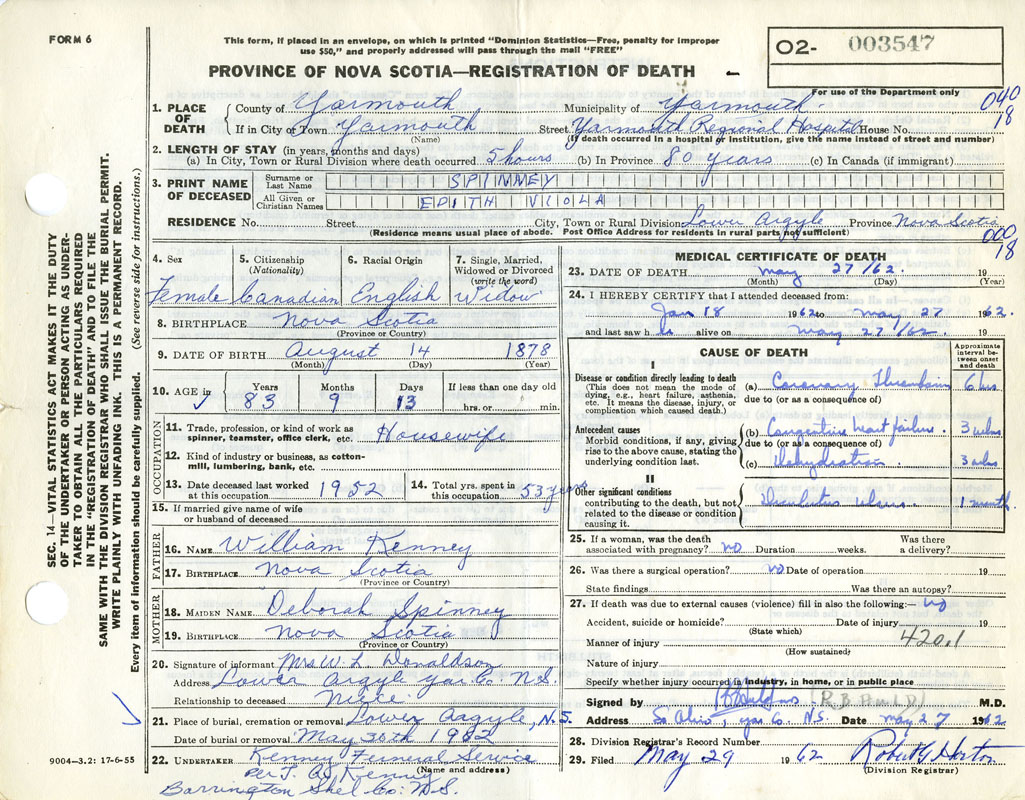 FORM 6
This form, if placed in an envelope, on which is printed "Dominion Statistics—Free, penalty for improper
use $50," and properly addressed will pass through the mail "FREE"
PROVINCE OF NOVA SCOTIA—REGISTRATION OF DEATH
O2- 003547
For use of the Department only
040
18
1. PLACE OF DEATH
County of Yarmouth Municipality of Yarmouth
If in City or Town Yarmouth Street Yarmouth Regional Hospital House No.
(Name) (If death occurred in a hospital or institution, give the name instead of street and number)
2. LENGTH OF STAY (in years, months and days)
(a) In City, Town or Rural Division where death occurred 5 hours (b) In Province 80 years (c) In Canada (if immigrant)
3. PRINT NAME OF DECEASED
Surname or Last Name SPINNEY
All Given or Christian Names EDITH VIOLA
RESIDENCE No. Street City, Town or Rural Division Lower Argyle Province Nova Scotia
(Residence means usual place of abode. Post Office Address for residents in rural parts not sufficient)
000
18
4. Sex Female
5. Citizenship (Nationality) Canadian
6. Racial Origin English
7. Single, Married, Widowed or Divorced (write the word) Widow
8. BIRTHPLACE Nova Scotia
(Province or Country)
9. DATE OF BIRTH August 14 1878
(Month) (Day) (Year)
10. AGE in Years Months Days If less than one day old
83 9 13 hrs. or min.
OCCUPATION
11. Trade, profession, or kind of work as spinner, teamster, office clerk, etc. Housewife
12. Kind of industry or business, as cotton-mill, lumbering, bank, etc.
13. Date deceased last worked at this occupation 1952
14. Total yrs. spent in this occupation 53 years
15. If married give name of wife or husband of deceased
FATHER
16. NAME William Kenney
17. BIRTHPLACE Nova Scotia
(Province or Country)
MOTHER
18. MAIDEN NAME Deborah Spinney
19. BIRTHPLACE Nova Scotia
(Province or Country)
20. Signature of informant Mrs W. L. Donaldson
Address Lower Argyle Yar. Co. N.S.
Relationship to deceased Niece
21. Place of burial, cremation or removal Lower Argyle, N.S.
Date of burial or removal May 30th 1962
22. UNDERTAKER Kenney Funeral Service
(Name and address)
per J. Kenney
Barrington Shel. Co: N.S.
9004—3.2: 17-6-55
MEDICAL CERTIFICATE OF DEATH
23. DATE OF DEATH May 27/62. 19
(Month) (Day) (Year)
24. I HEREBY CERTIFY that I attended deceased from:
Jan 18 1962 to May 27 1962.
and last saw h alive on May 27/62 19
CAUSE OF DEATH
Approximate interval between onset and death
I
Disease or condition directly leading to death
(This does not mean the mode of dying, e.g., heart failure, asthenia, etc. It means the disease, injury, or complication which caused death.)
(a) Coronary Thrombosis 6 hrs
due to (or as a consequence of)
Antecedent causes
Morbid conditions, if any, giving rise to the above cause, stating the underlying condition last.
(b) Congestive heart failure. 3 wks
due to (or as a consequence of)
(c) Dehydration 3 wks
II
Other significant conditions
contributing to the death, but not related to the disease or condition causing it.
Decubitus ulcers 1 month
25. If a woman, was the death associated with pregnancy? no Duration weeks. Was there a delivery?
26. Was there a surgical operation? no Date of operation 19
State findings Was there an autopsy?
27. If death was due to external causes (violence) fill in also the following:— no
Accident, suicide or homicide? Date of injury 19
(State which)
420.1
Manner of injury
(How sustained)
Nature of injury
Specify whether injury occurred in industry, in home, or in public place
Signed by M.D.
Address So Ohio, Yar Co. N.S. Date May 27 1962
28. Division Registrar's Record Number
29. Filed May 29 1962 Robert G Horton
(Division Registrar)
SEC. 14—VITAL STATISTICS ACT MAKES IT THE DUTY
OF THE UNDERTAKER OR PERSON ACTING AS UNDER-
TAKER TO OBTAIN ALL THE PARTICULARS REQUIRED
IN THE "REGISTRATION OF DEATH" AND TO FILE THE
SAME WITH THE DIVISION REGISTRAR WHO SHALL ISSUE THE BURIAL PERMIT.
WRITE PLAINLY WITH UNFADING INK. THIS IS A PERMANENT RECORD.
Every item of information should be carefully supplied. (See reverse side for instructions.)